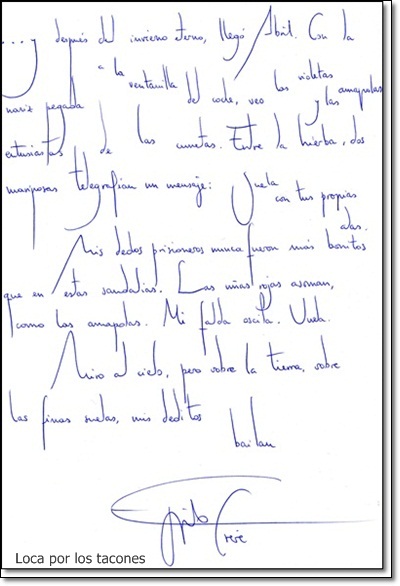 ... y después del invierno terno, llegó Abril. Con la
nariz pegada a la ventanilla del coche, veo las violetas y las amapolas
entusiastas de las cunetas. Entre la hierba, dos
mariposas telegrafían un mensaje: Vuela con tus propias
alas.
Mis dedos prisioneros nunca fueron más bonitos
que en estas sandalias. Las uñas rojas asoman,
como las amapolas. Mi falda oscila. Vuela.
Miro al cielo, pero sobre la tierra, sobre
las finas suelas, mis deditos
bailan
Loca por los tacones